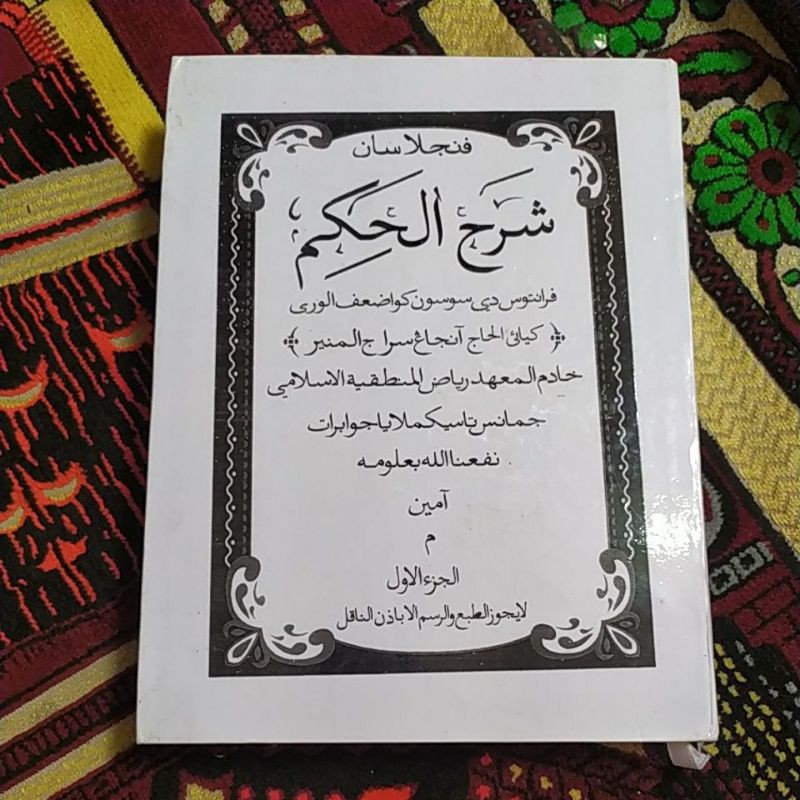 فنجلاسان
شرح الحكم
فرانتوس دي سوسون كو اضعف الورى
كيائ الحاج آنجاڠ سراج المنير
خادم المعهد رياض المنطقية الاسلامي
جمانس تاسيكملايا جوا برات
نفعنا الله بعلومه
آمين
م
الجزء الاول
لا يجوز الطبع والرسم الا باذن الناقل